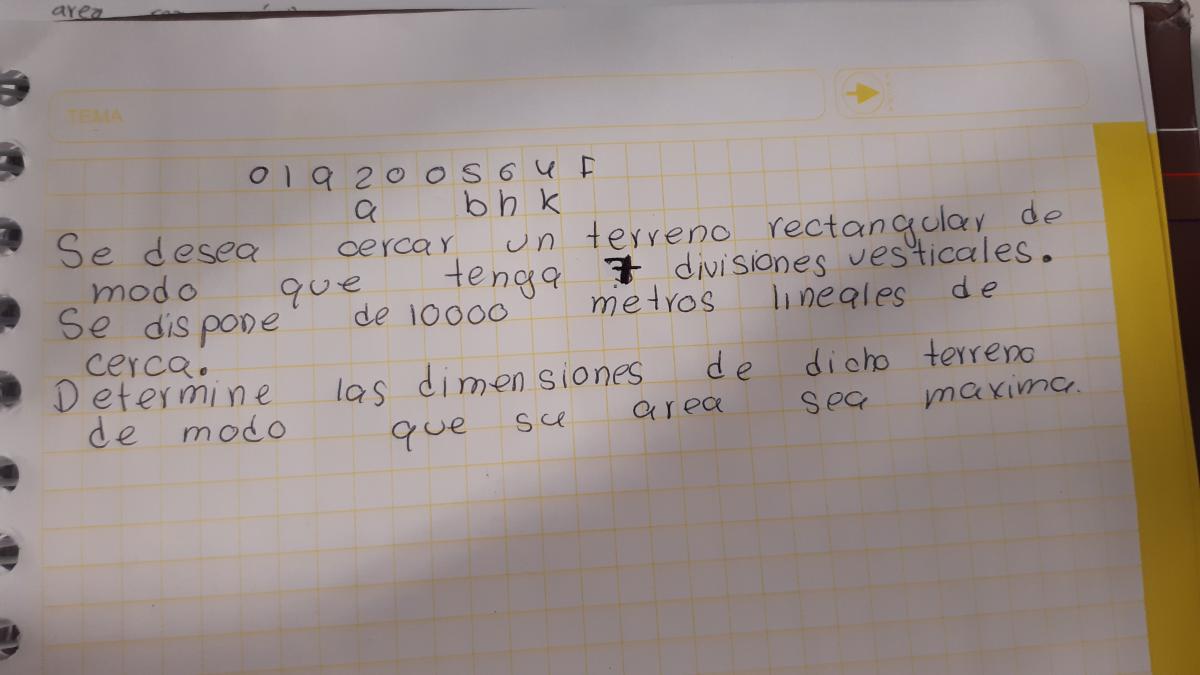 area
TEMA
019200564F
a bhk
Se desea cercar un terreno rectangular de
modo que tenga 7 divisiones vesticales.
Se dispone de 10000 metros lineales de
cerca.
Determine las dimensiones de dicho terreno
de modo que su area sea maxima.